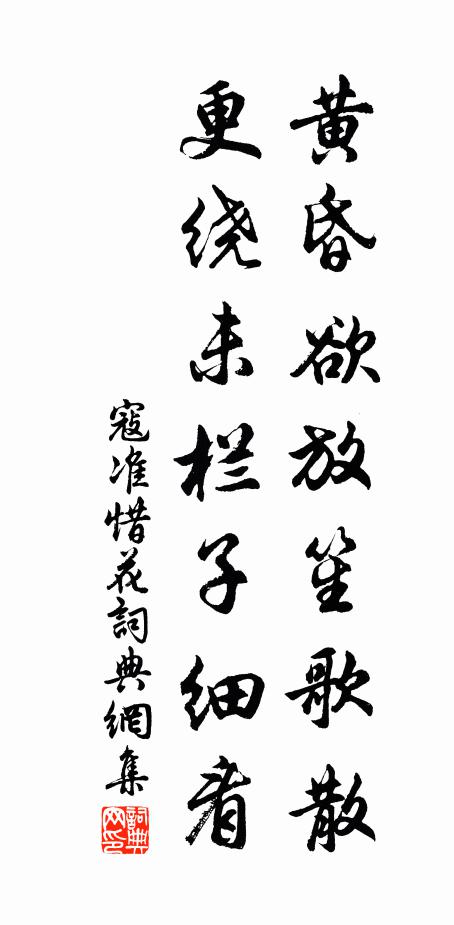 黄昏欲放笙歌散
更绕朱栏子细看
寇准惜花詞典網集
詞典
网印